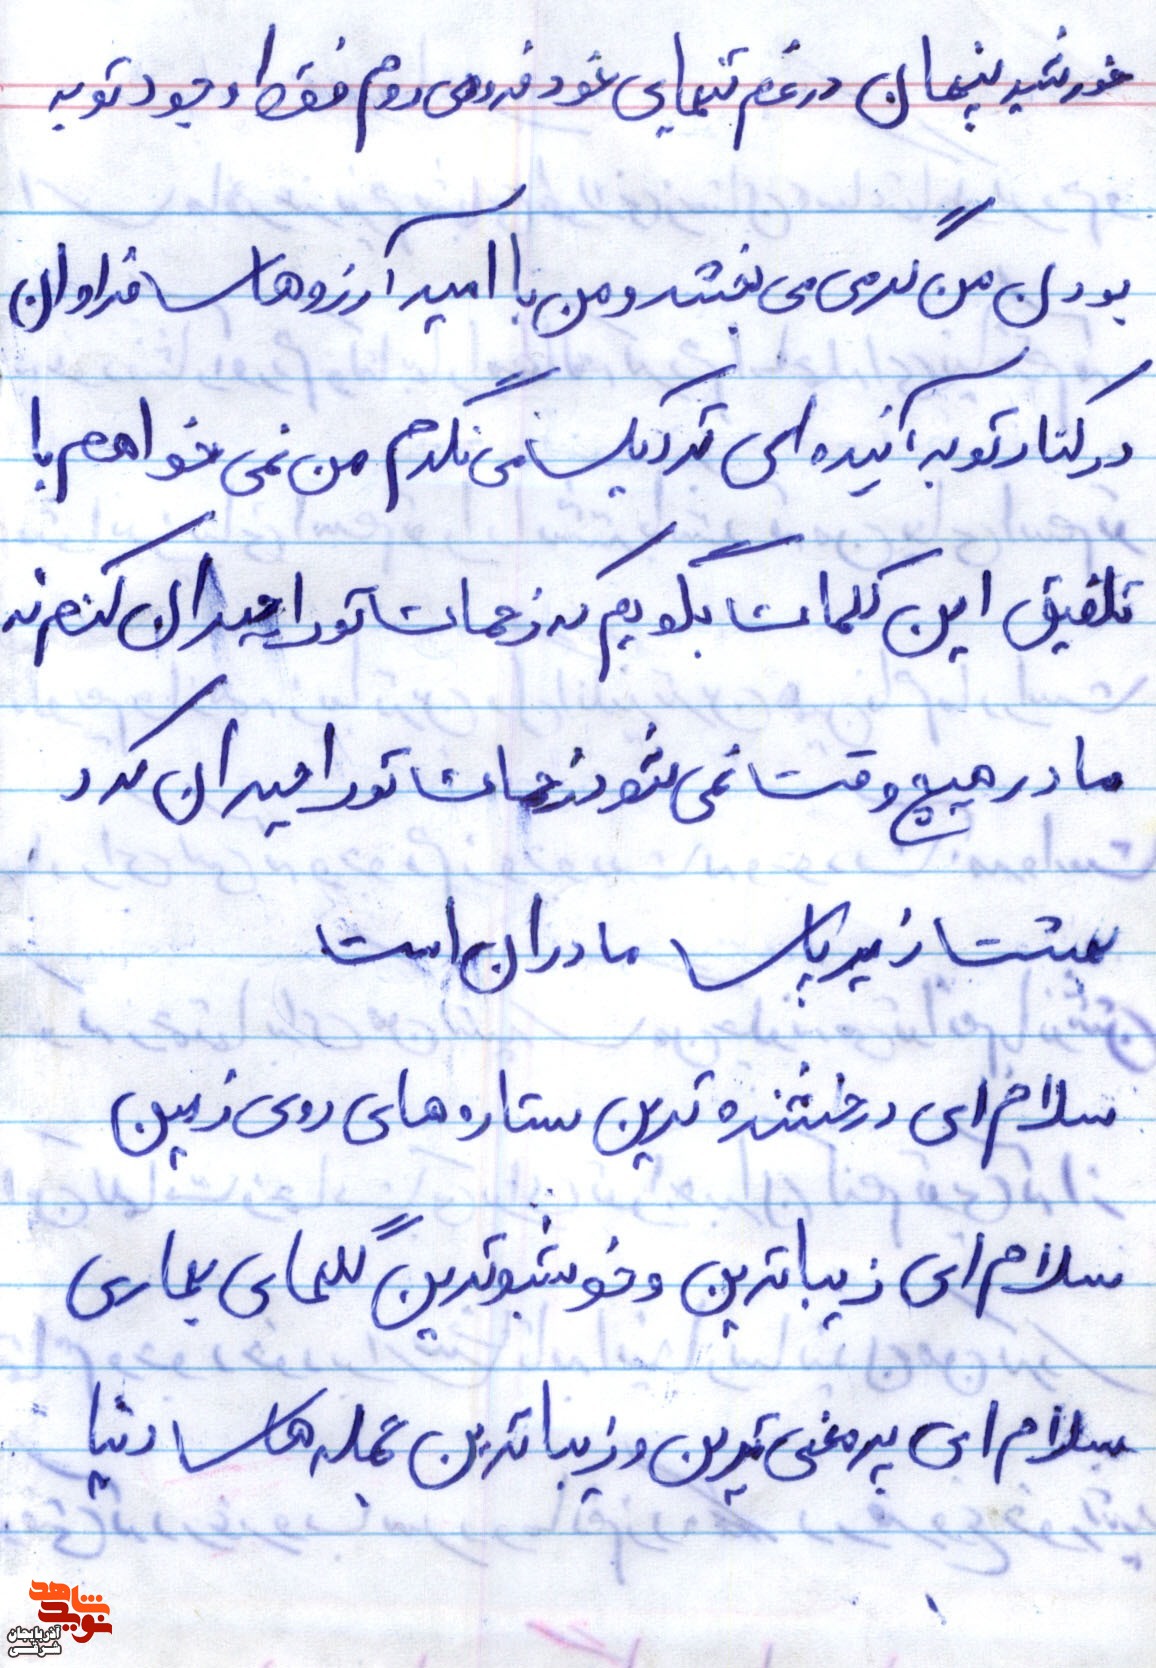 خورشید پنهان در غم تنهایی خود فرو می روم فقط وجود تو به
بودن من گرمی می بخشد و من با امید آرزوهای فراوان
در کنار تو به آینده ای نزدیک می نگرم من نمی خواهم با
تلفیق این کلمات بگویم که زحمات تو را جبران کنم نه
مادر هیچ وقت نمی شود زحمات تو را جبران کرد
بهشت زیر پای مادران است
سلام ای درخشنده ترین ستاره های روی زمین
سلام ای زیباترین و خوشبوترین گلهای بهاری
سلام ای پرمعنی ترین و زیباترین جمله های دنیا
نوید شاهد
آذربایجان شرقی